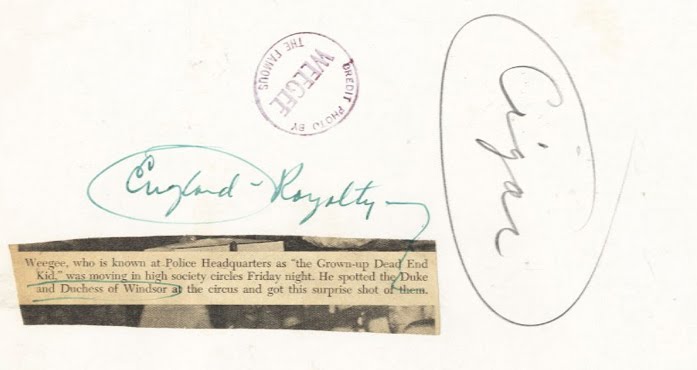 CREDIT PHOTO BY
WEEGEE
THE FAMOUS
Cigar
England - Royalty
Weegee, who is known at Police Headquarters as “the Grown-up Dead End
Kid,” was moving in high society circles Friday night. He spotted the Duke
and Duchess of Windsor at the circus and got this surprise shot of them.